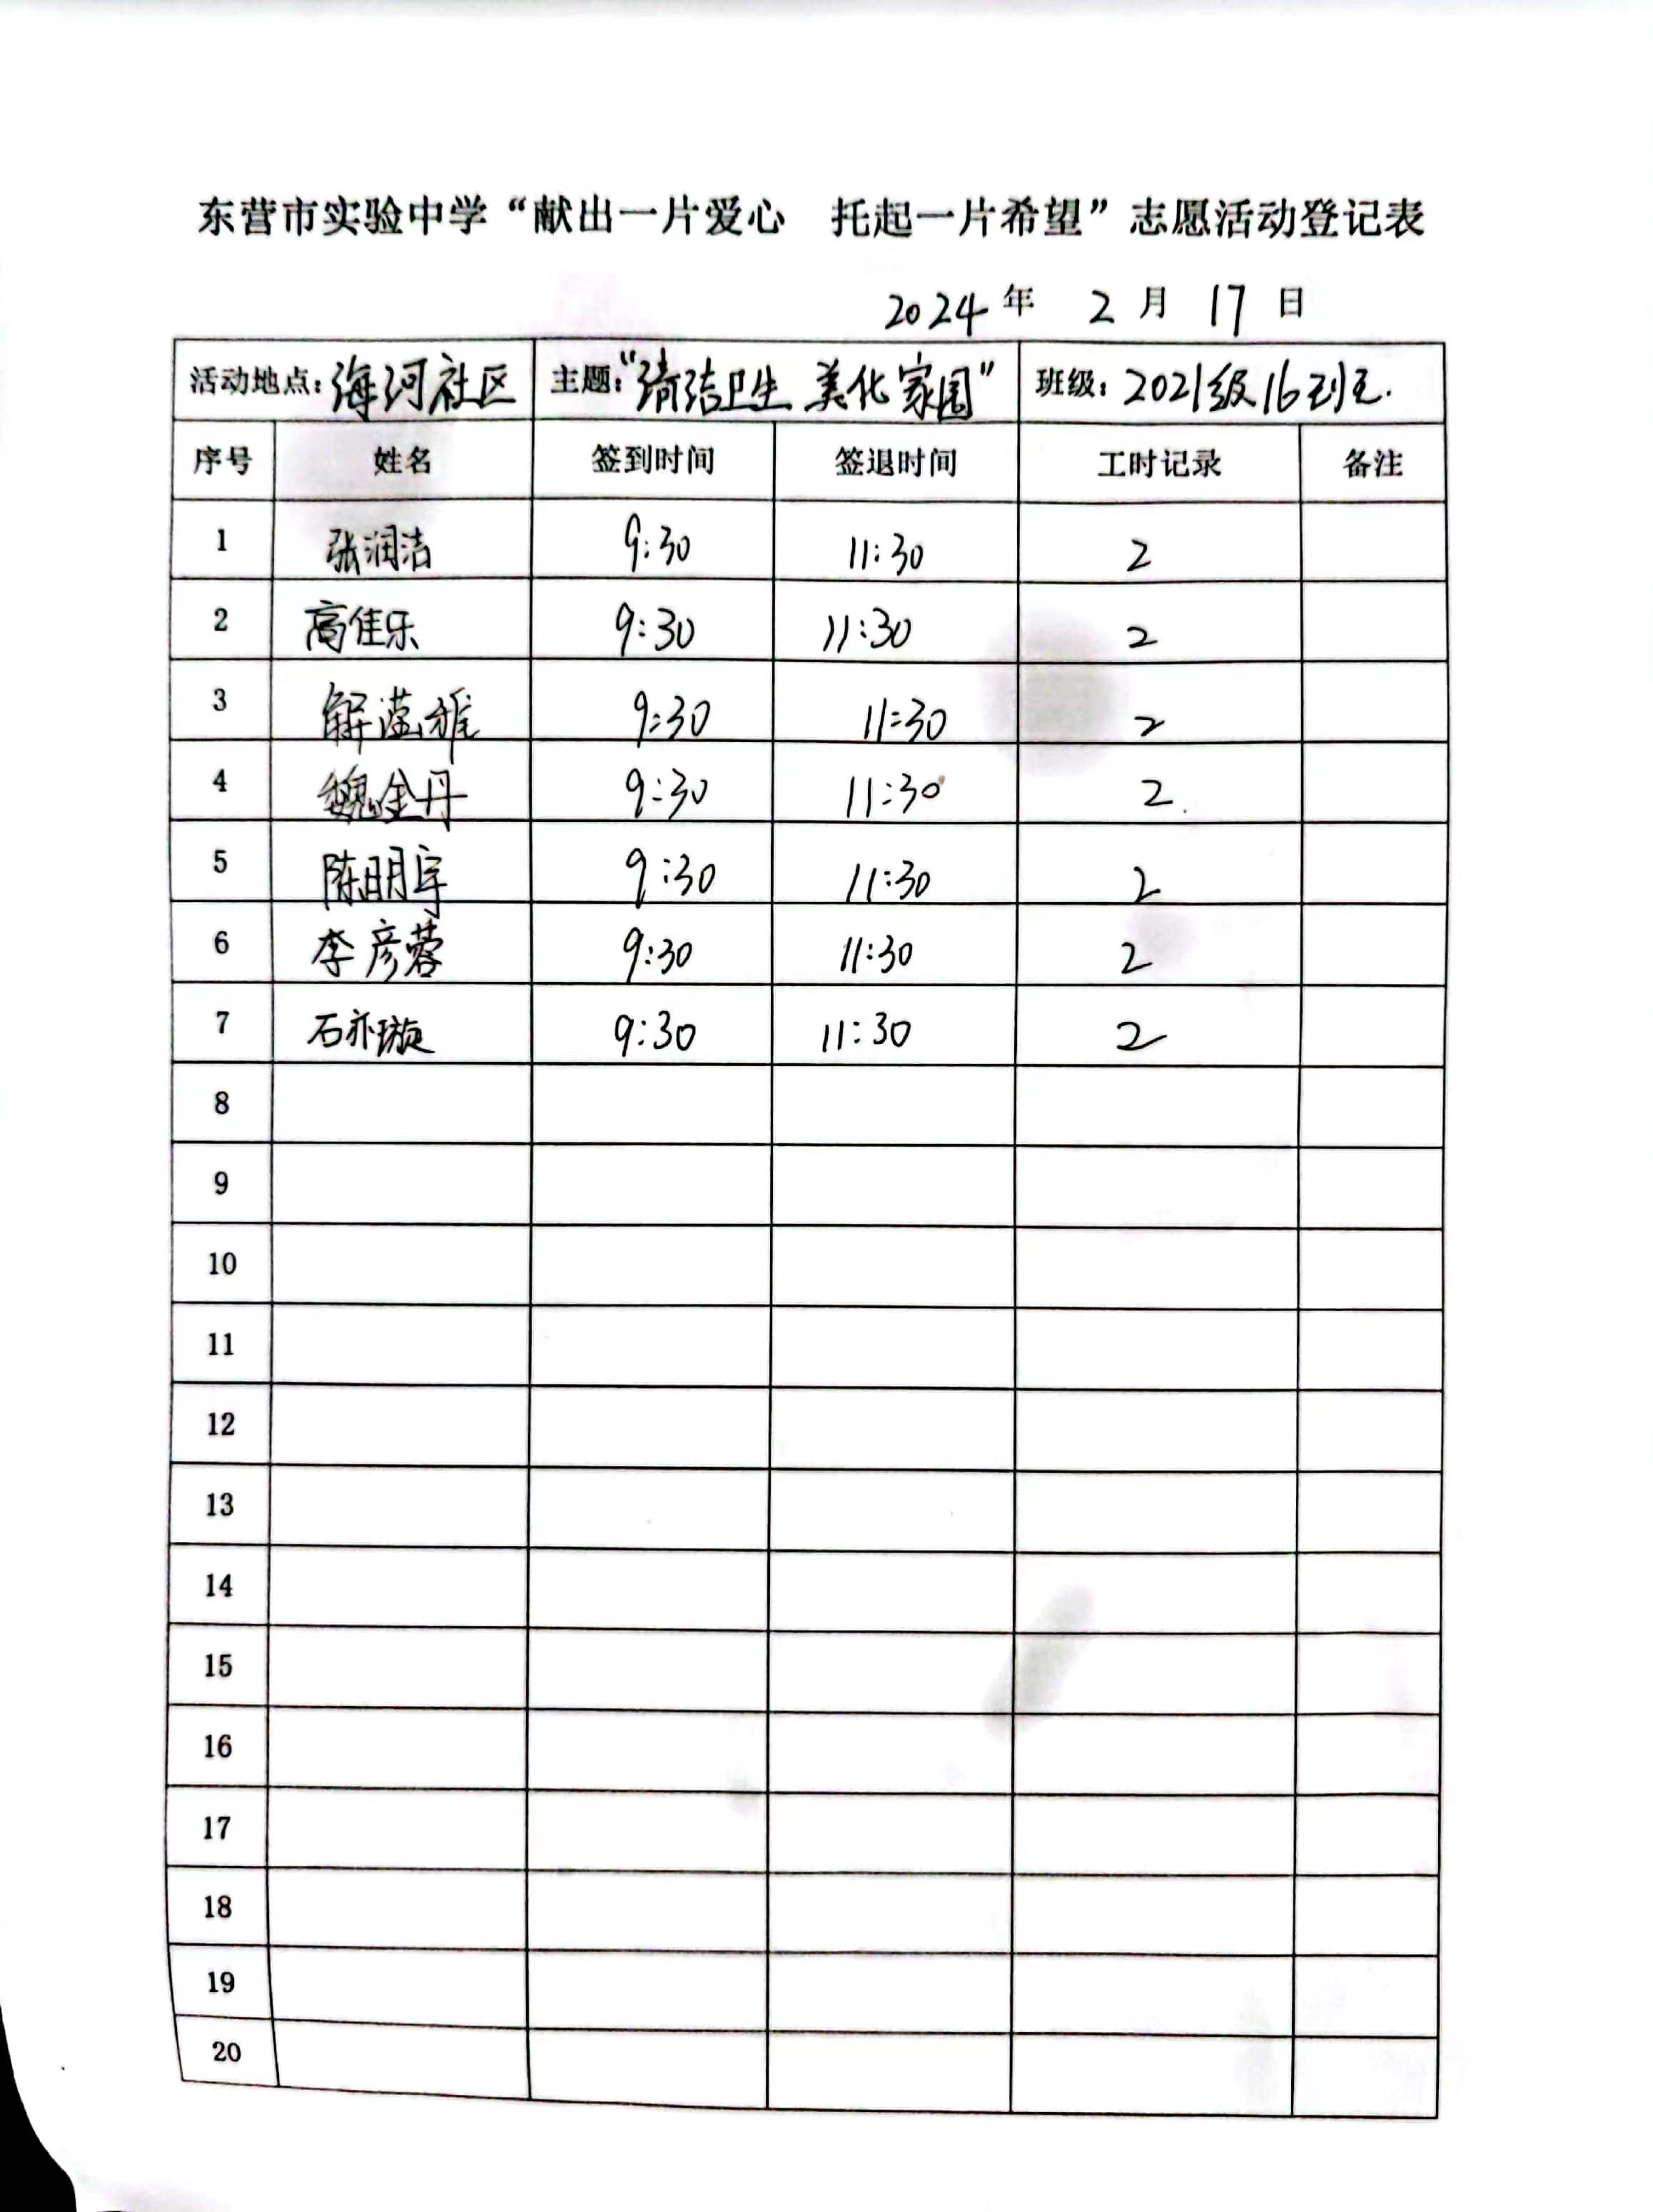 东营市实验中学“献出一片爱心 托起一片希望”志愿活动登记表
2024年 2月 17日
活动地点：海河社区 主题：“清洁卫生 美化家园” 班级：2021级16班.
序号 姓名 签到时间 签退时间 工时记录 备注
1 张润洁 9:30 11:30 2
2 高佳乐 9:30 11:30 2
3 解滢雅 9:30 11:30 2
4 魏金丹 9:30 11:30 2
5 陈明宇 9:30 11:30 2
6 李彦蓉 9:30 11:30 2
7 石亦璇 9:30 11:30 2
8
9
10
11
12
13
14
15
16
17
18
19
20